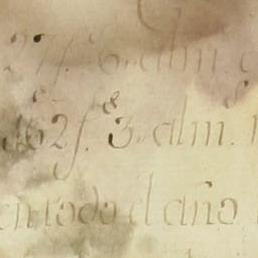 27f. 6. alm.
162f. 3. alm.
en todo el año